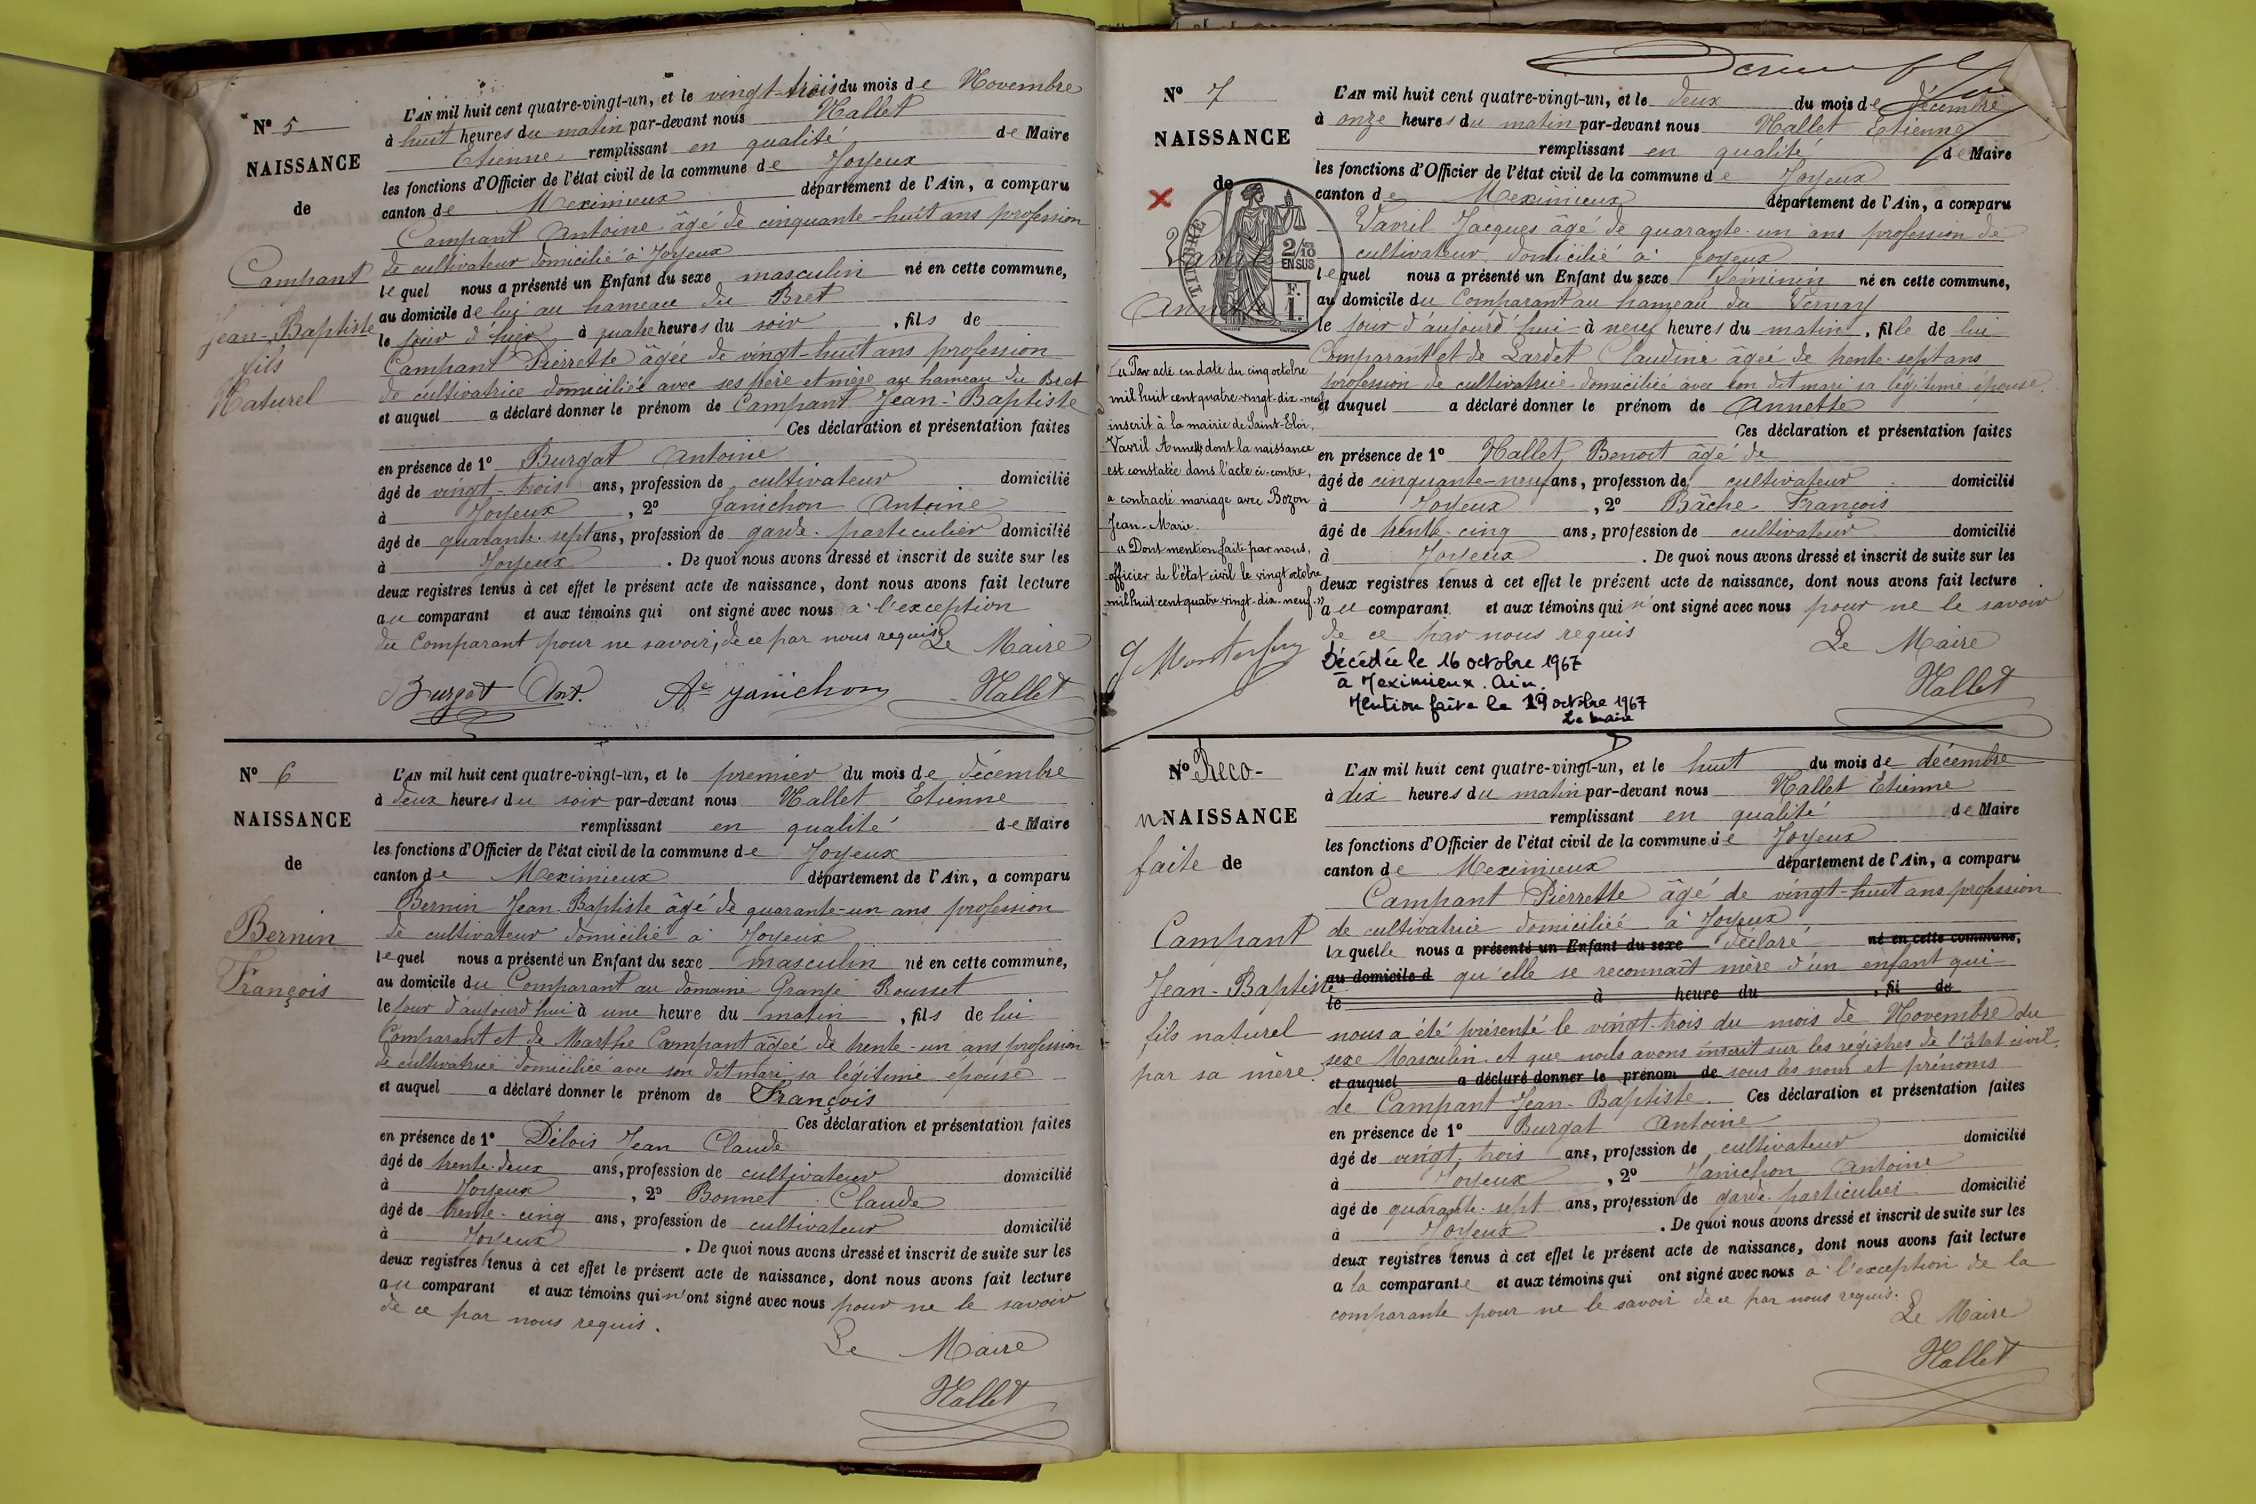 Nº 5
NAISSANCE
de
Campant
Jean-Baptiste
fils
Naturel
L'AN mil huit cent quatre-vingt-un, et le vingt-trois du mois de Novembre
à huit heures du matin par-devant nous Hallet
Etienne remplissant en qualité de Maire
les fonctions d'Officier de l'état civil de la commune de Joyeux
canton de Meximieux département de l'Ain, a comparu
Campant Antoine âgé de cinquante-huit ans profession
de cultivateur domicilié à Joyeux
lequel nous a présenté un Enfant du sexe masculin né en cette commune,
au domicile de lui au hameau du Bret
le jour d'hier à quatre heures du soir, fils de
Campant Pierrette âgée de vingt-huit ans profession
de cultivatrice domiciliée avec ses père et mère au hameau du Bret
et auquel a déclaré donner le prénom de Campant Jean-Baptiste
Ces déclaration et présentation faites
en présence de 1º Burgat Antoine
âgé de vingt-trois ans, profession de cultivateur domicilié
à Joyeux, 2º Janichon Antoine
âgé de quarante-sept ans, profession de garde-particulier domicilié
à Joyeux. De quoi nous avons dressé et inscrit de suite sur les
deux registres tenus à cet effet le présent acte de naissance, dont nous avons fait lecture
au comparant et aux témoins qui ont signé avec nous à l'exception
du Comparant pour ne savoir, de ce par nous requis. Le Maire
Burgat Ant. Ae Janichon Hallet
Nº 6
NAISSANCE
de
Bernin
François
L'AN mil huit cent quatre-vingt-un, et le premier du mois de décembre
à deux heures du soir par-devant nous Hallet Etienne
remplissant en qualité de Maire
les fonctions d'Officier de l'état civil de la commune de Joyeux
canton de Meximieux département de l'Ain, a comparu
Bernin Jean-Baptiste âgé de quarante-un ans profession
de cultivateur domicilié à Joyeux
lequel nous a présenté un Enfant du sexe masculin né en cette commune,
au domicile du Comparant au domaine Grange Rousset
le jour d'aujourd'hui à une heure du matin, fils de lui
Comparant et de Marthe Campant âgée de trente-un ans profession
de cultivatrice domiciliée avec son dit mari sa légitime épouse
et auquel a déclaré donner le prénom de François
Ces déclaration et présentation faites
en présence de 1º Délois Jean Claude
âgé de trente-deux ans, profession de cultivateur domicilié
à Joyeux, 2º Bonnet Claude
âgé de trente-cinq ans, profession de cultivateur domicilié
à Joyeux. De quoi nous avons dressé et inscrit de suite sur les
deux registres tenus à cet effet le présent acte de naissance, dont nous avons fait lecture
au comparant et aux témoins qui n'ont signé avec nous pour ne le savoir
de ce par nous requis.
Le Maire
Hallet
Nº 7
NAISSANCE
de
Vavril
Annette
TIMBRE
2/10
EN SUS
F.
1.
« Par acte en date du cinq octobre
mil huit cent quatre-vingt-dix-neuf
inscrit à la mairie de Saint-Eloi,
Vavril Annette dont la naissance
est constatée dans l'acte ci-contre,
a contracté mariage avec Bozon
Jean-Marie.
« Dont mention faite par nous,
officier de l'état civil le vingt octobre
mil huit cent quatre-vingt-dix-neuf. »
L'AN mil huit cent quatre-vingt-un, et le deux du mois de décembre
à onze heures du matin par-devant nous Hallet Etienne
remplissant en qualité de Maire
les fonctions d'Officier de l'état civil de la commune de Joyeux
canton de Meximieux département de l'Ain, a comparu
Vavril Jacques âgé de quarante-un ans profession de
cultivateur domicilié à Joyeux
lequel nous a présenté un Enfant du sexe féminin né en cette commune,
au domicile du Comparant au hameau du Vernay
le jour d'aujourd'hui à neuf heures du matin, fille de lui
Comparant et de Lardet Claudine âgée de trente-sept ans
profession de cultivatrice domiciliée avec son dit mari sa légitime épouse
et auquel a déclaré donner le prénom de Annette
Ces déclaration et présentation faites
en présence de 1º Hallet Benoit âgé de
âgé de cinquante-neuf ans, profession de cultivateur domicilié
à Joyeux, 2º Bâche François
âgé de trente-cinq ans, profession de cultivateur domicilié
à Joyeux. De quoi nous avons dressé et inscrit de suite sur les
deux registres tenus à cet effet le présent acte de naissance, dont nous avons fait lecture
au comparant et aux témoins qui n'ont signé avec nous pour ne le savoir
de ce par nous requis
Le Maire
Hallet
Décédée le 16 octobre 1967
à Meximieux. Ain.
Mention faite le 19 octobre 1967
Le maire
Nº Reco-
nNAISSANCE
faite de
Campant
Jean-Baptiste
fils naturel
par sa mère.
L'AN mil huit cent quatre-vingt-un, et le huit du mois de décembre
à dix heures du matin par-devant nous Hallet Etienne
remplissant en qualité de Maire
les fonctions d'Officier de l'état civil de la commune de Joyeux
canton de Meximieux département de l'Ain, a comparu
Campant Pierrette âgé de vingt-huit ans profession
de cultivatrice domiciliée à Joyeux
laquelle nous a présenté un Enfant du sexe déclaré né en cette commune,
au domicile d qu'elle se reconnaît mère d'un enfant qui
le à heure du , fil de
nous a été présenté le vingt-trois du mois de Novembre du
sexe Masculin. Et que nous avons inscrit sur les registres de l'état civil,
et auquel a déclaré donner le prénom de sous les nom et prénoms
de Campant Jean-Baptiste. Ces déclaration et présentation faites
en présence de 1º Burgat Antoine
âgé de vingt-trois ans, profession de cultivateur domicilié
à Joyeux, 2º Janichon Antoine
âgé de quarante-sept ans, profession de garde-particulier domicilié
à Joyeux. De quoi nous avons dressé et inscrit de suite sur les
deux registres tenus à cet effet le présent acte de naissance, dont nous avons fait lecture
a la comparante et aux témoins qui ont signé avec nous à l'exception de la
comparante pour ne le savoir de ce par nous requis.
Le Maire
Hallet